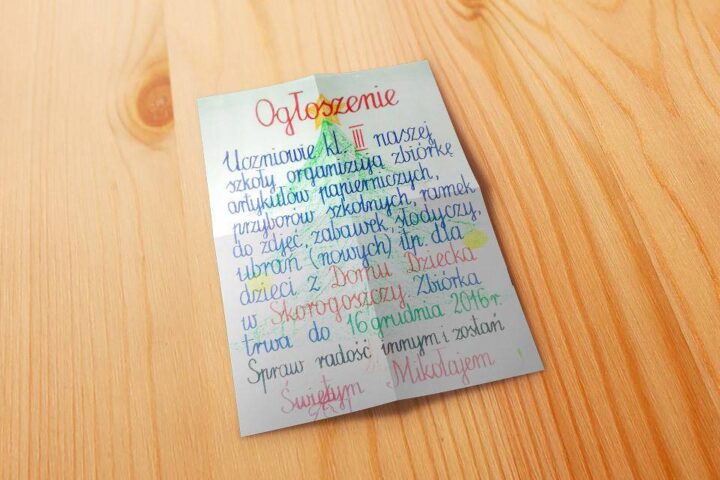 Ogłoszenie
Uczniowie kl. III naszej
szkoły organizują zbiórkę
artykułów papierniczych,
przyborów szkolnych, ramek
do zdjęć, zabawek, słodyczy,
ubrań (nowych) itp. dla
dzieci z Domu Dziecka
w Skorogoszczy. Zbiórka
trwa do 16 grudnia 2016r.
Spraw radość innym i zostań
Świętym Mikołajem